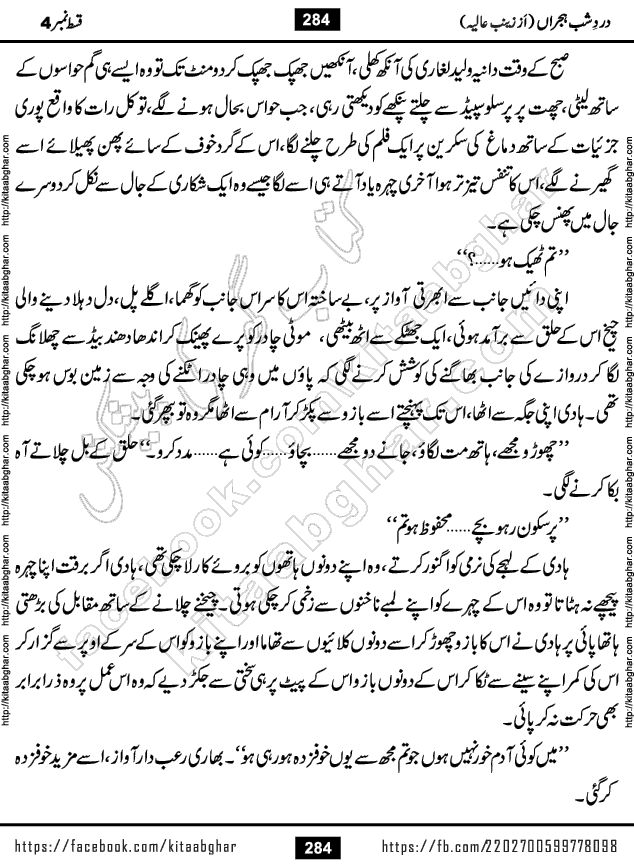 دردِ شب ہجراں (از زینب عالیہ) 284 قسط نمبر 4
صبح کے وقت دانیہ ولید لغاری کی آنکھ کھلی، آنکھیں جھپک جھپک کر دو منٹ تک تو وہ ایسے ہی گم حواسوں کے
ساتھ لیٹی، چھت پر پر سلو سپیڈ سے چلتے پنکھے کو دیکھتی رہی، جب حواس بحال ہونے لگے، تو کل رات کا واقع پوری
جزئیات کے ساتھ دماغ کی سکرین پر ایک فلم کی طرح چلنے لگا، اس کے گرد خوف کے سائے پھن پھیلائے اسے
گھیرنے لگے، اس کا تنفس تیز تر ہوا آخری چہرہ یاد آتے ہی اسے لگا جیسے وہ ایک شکاری کے جال سے نکل کر دوسرے
جال میں پھنس چکی ہے۔
’’تم ٹھیک ہو......؟‘‘
اپنی دائیں جانب سے ابھرتی آواز پر، بے ساختہ اس کا سر اس جانب کو گھما، اگلے پل، دل دہلا دینے والی
چیخ اس کے حلق سے برآمد ہوئی، ایک جھٹکے سے اٹھ بیٹھی، موٹی چادر کو پرے پھینک کر اندھا دھند بیڈ سے چھلانگ
لگا کر دروازے کی جانب بھاگنے کی کوشش کرنے لگی کہ پاؤں میں وہی چادر اٹکنے کی وجہ سے زمین بوس ہو چکی
تھی۔ ہادی اپنی جگہ سے اٹھا، اس تک پہنچتے اسے بازو سے پکڑ کر آرام سے اٹھا مگر وہ تو بپھر گئی۔
’’چھوڑو مجھے، ہاتھ مت لگاؤ، جانے دو مجھے...... بچاؤ...... کوئی ہے...... مدد کرو۔‘‘ حلق کے بل چلاتے آہ
بکا کرنے لگی۔
’’پرسکون رہو بچے...... محفوظ ہو تم‘‘
ہادی کے لہجے کی نرمی کو اگنور کرتے، وہ اپنے دونوں ہاتھوں کو بروئے کار لا چکی تھی، ہادی اگر بروقت اپنا چہرہ
پیچھے نہ ہٹاتا تو وہ اس کے چہرے کو اپنے لمبے ناخنوں سے زخمی کر چکی ہوتی۔ چیخنے چلانے کے ساتھ مقابل کی بڑھتی
ہاتھا پائی پر ہادی نے اس کا بازو چھوڑ کر اسے دونوں کلائیوں سے تھاما اور اپنے بازو کو اس کے سر کے اوپر سے گزار کر
اس کی کمر اپنے سینے سے ٹکا کر اس کے دونوں بازو اس کے پیٹ پر ہی سختی سے جکڑ دیے کہ وہ اس عمل پر وہ ذرا برابر
بھی حرکت نہ کر پائی۔
’’میں کوئی آدم خور نہیں ہوں جو تم مجھ سے یوں خوفزدہ ہو رہی ہو‘‘۔ بھاری رعب دار آواز، اسے مزید خوفزدہ
کر گئی۔
https://facebook.com/kitaabghar 284 https://fb.com/2202700599778098
http://kitaabghar.com http://kitaabghar.com http://kitaabghar.com http://kitaabghar.com http://kitaabghar.com http://kitaabghar.com
http://kitaabghar.com http://kitaabghar.com http://kitaabghar.com http://kitaabghar.com http://kitaabghar.com http://kitaabghar.com
کتاب گھر کی پیشکش
facebook.com/kitaabghar
kitaabghar.com